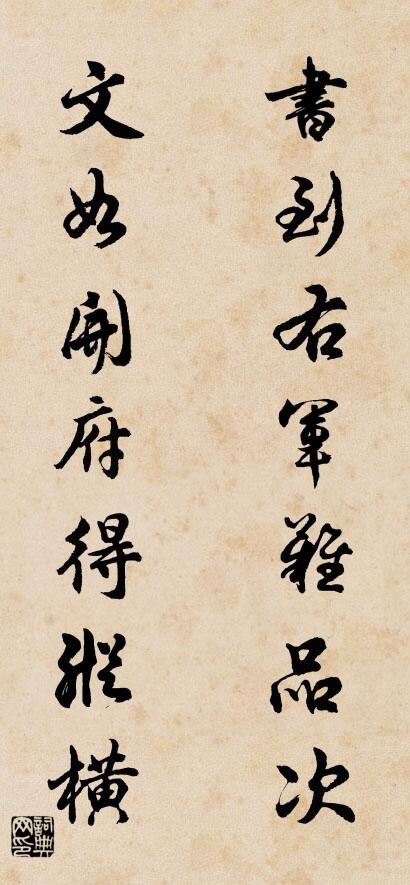 書到右軍難品次
文如開府得縱橫
詞典網印